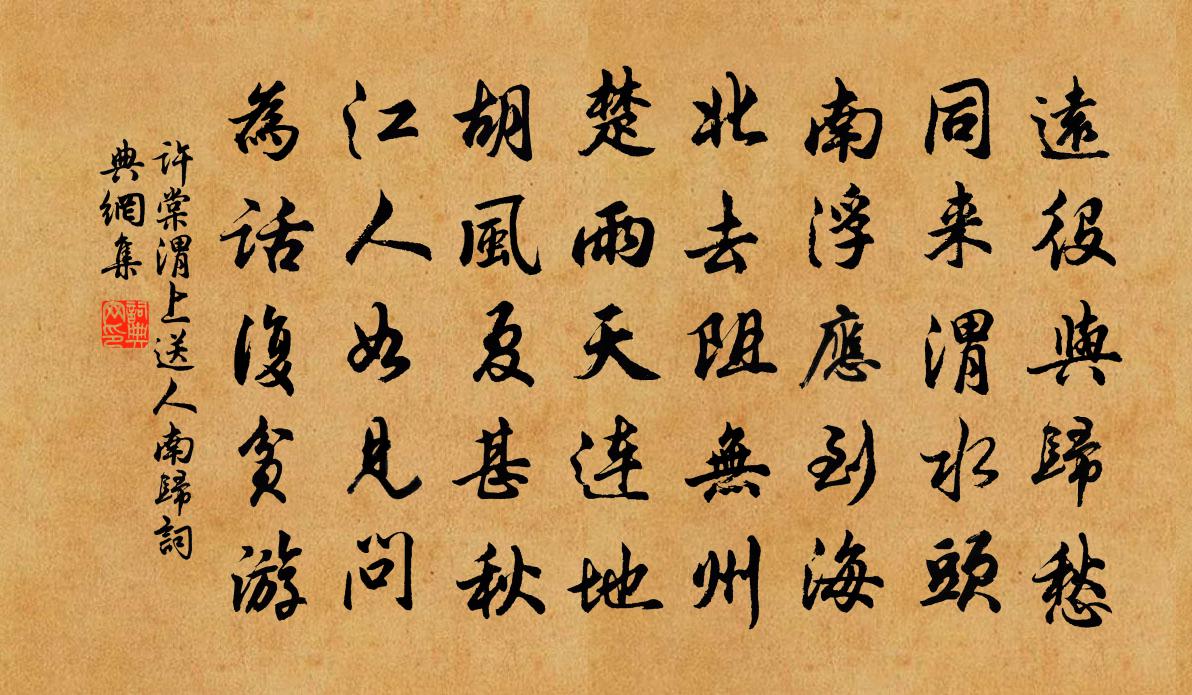 遠役與歸愁
同来渭水頭
南浮應到海
北去阻無州
楚雨天連地
胡風夏甚秋
江人如見問
為話復貧游
許棠渭上送人南歸詞
典網集
詞典
网印